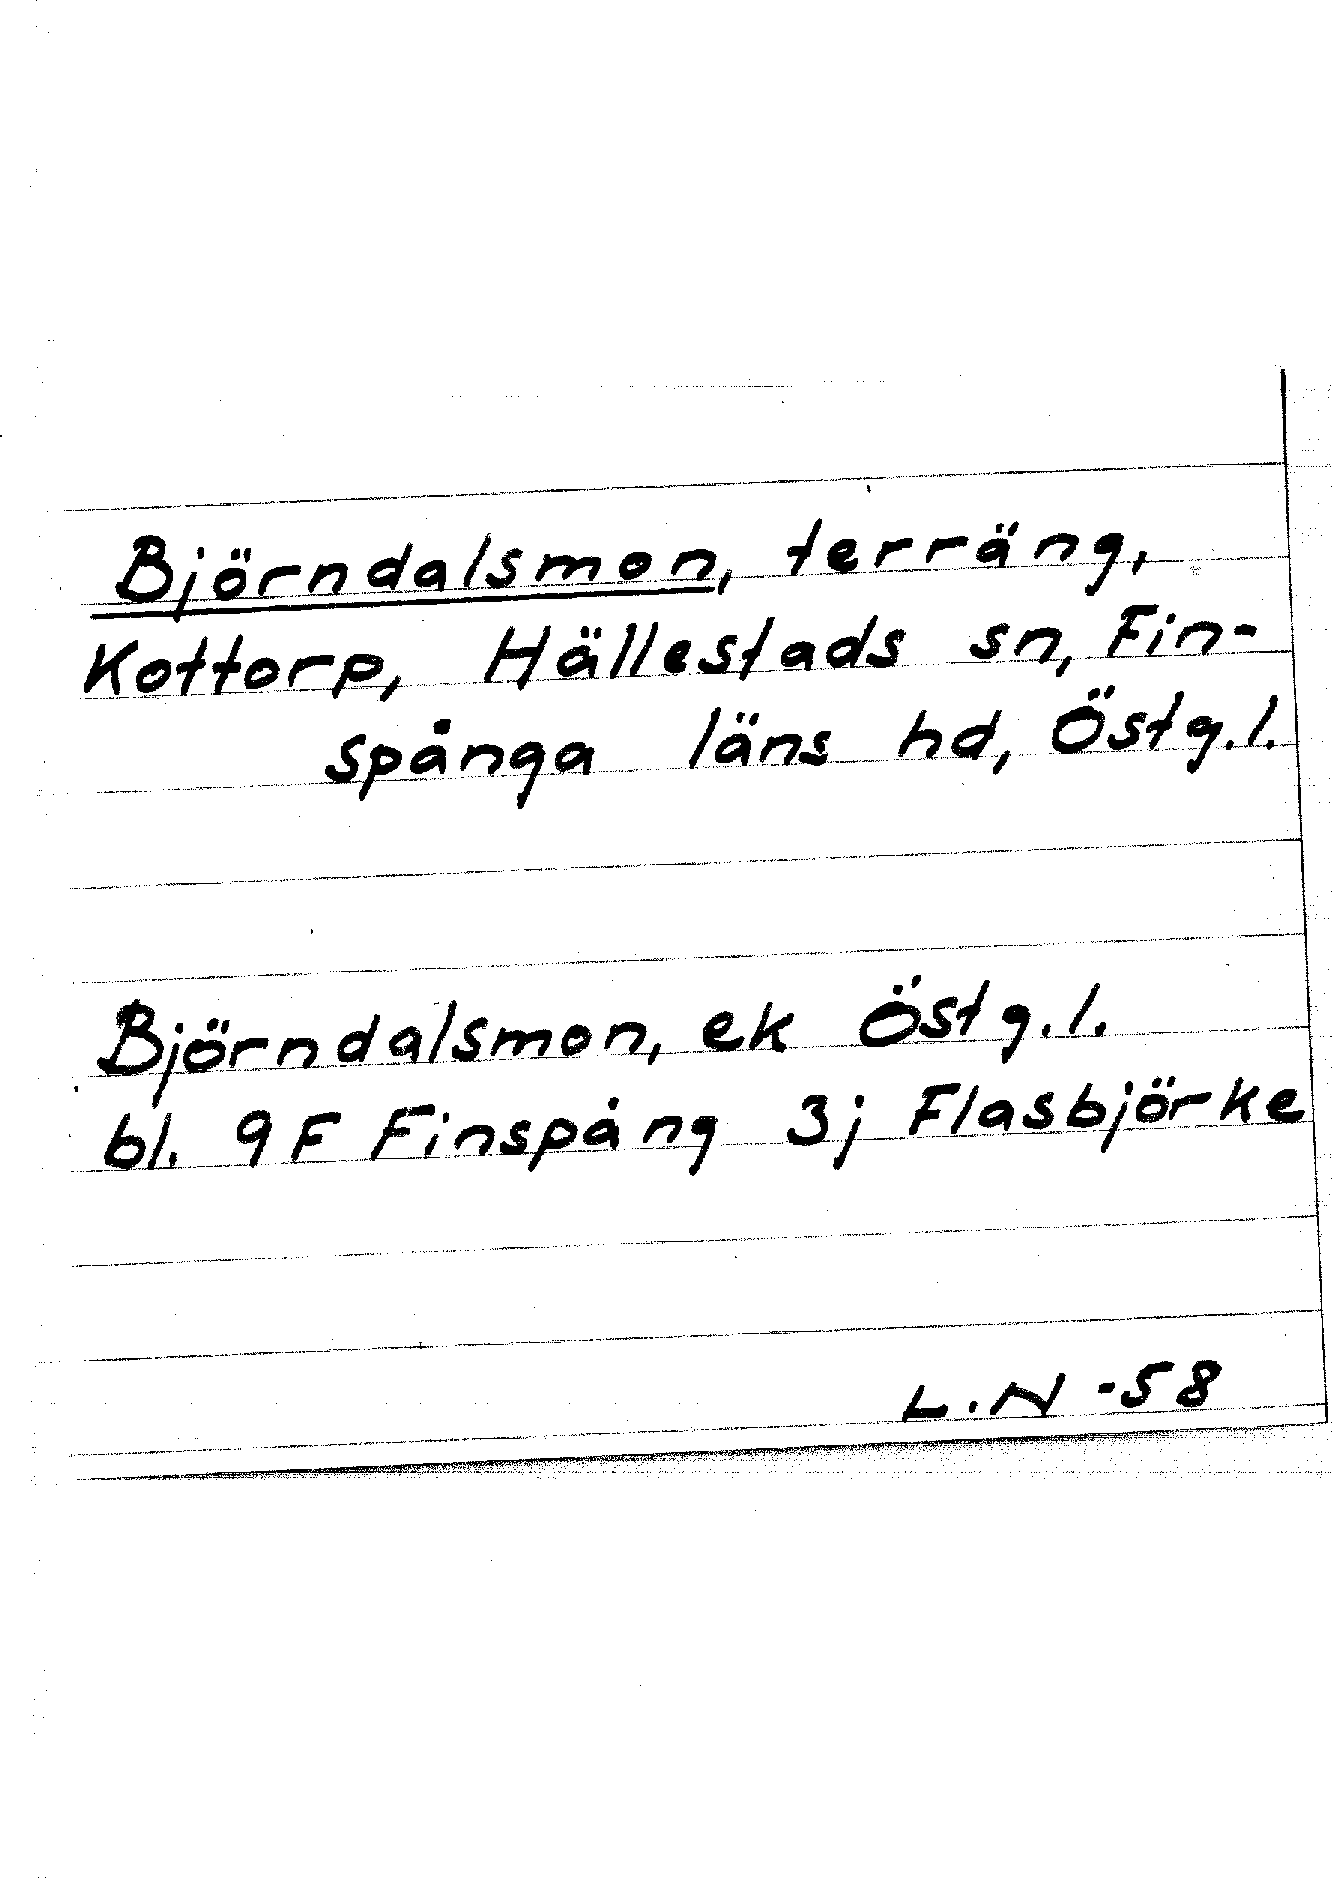 Björndalsmon, terräng,
Kottorp, Hällestads sn, Fin-
spånga läns hd, Östg.l.
Björndalsmon, ek Östg.l.
bl. 9F Finspång 3j Flasbjörke
L.N -58